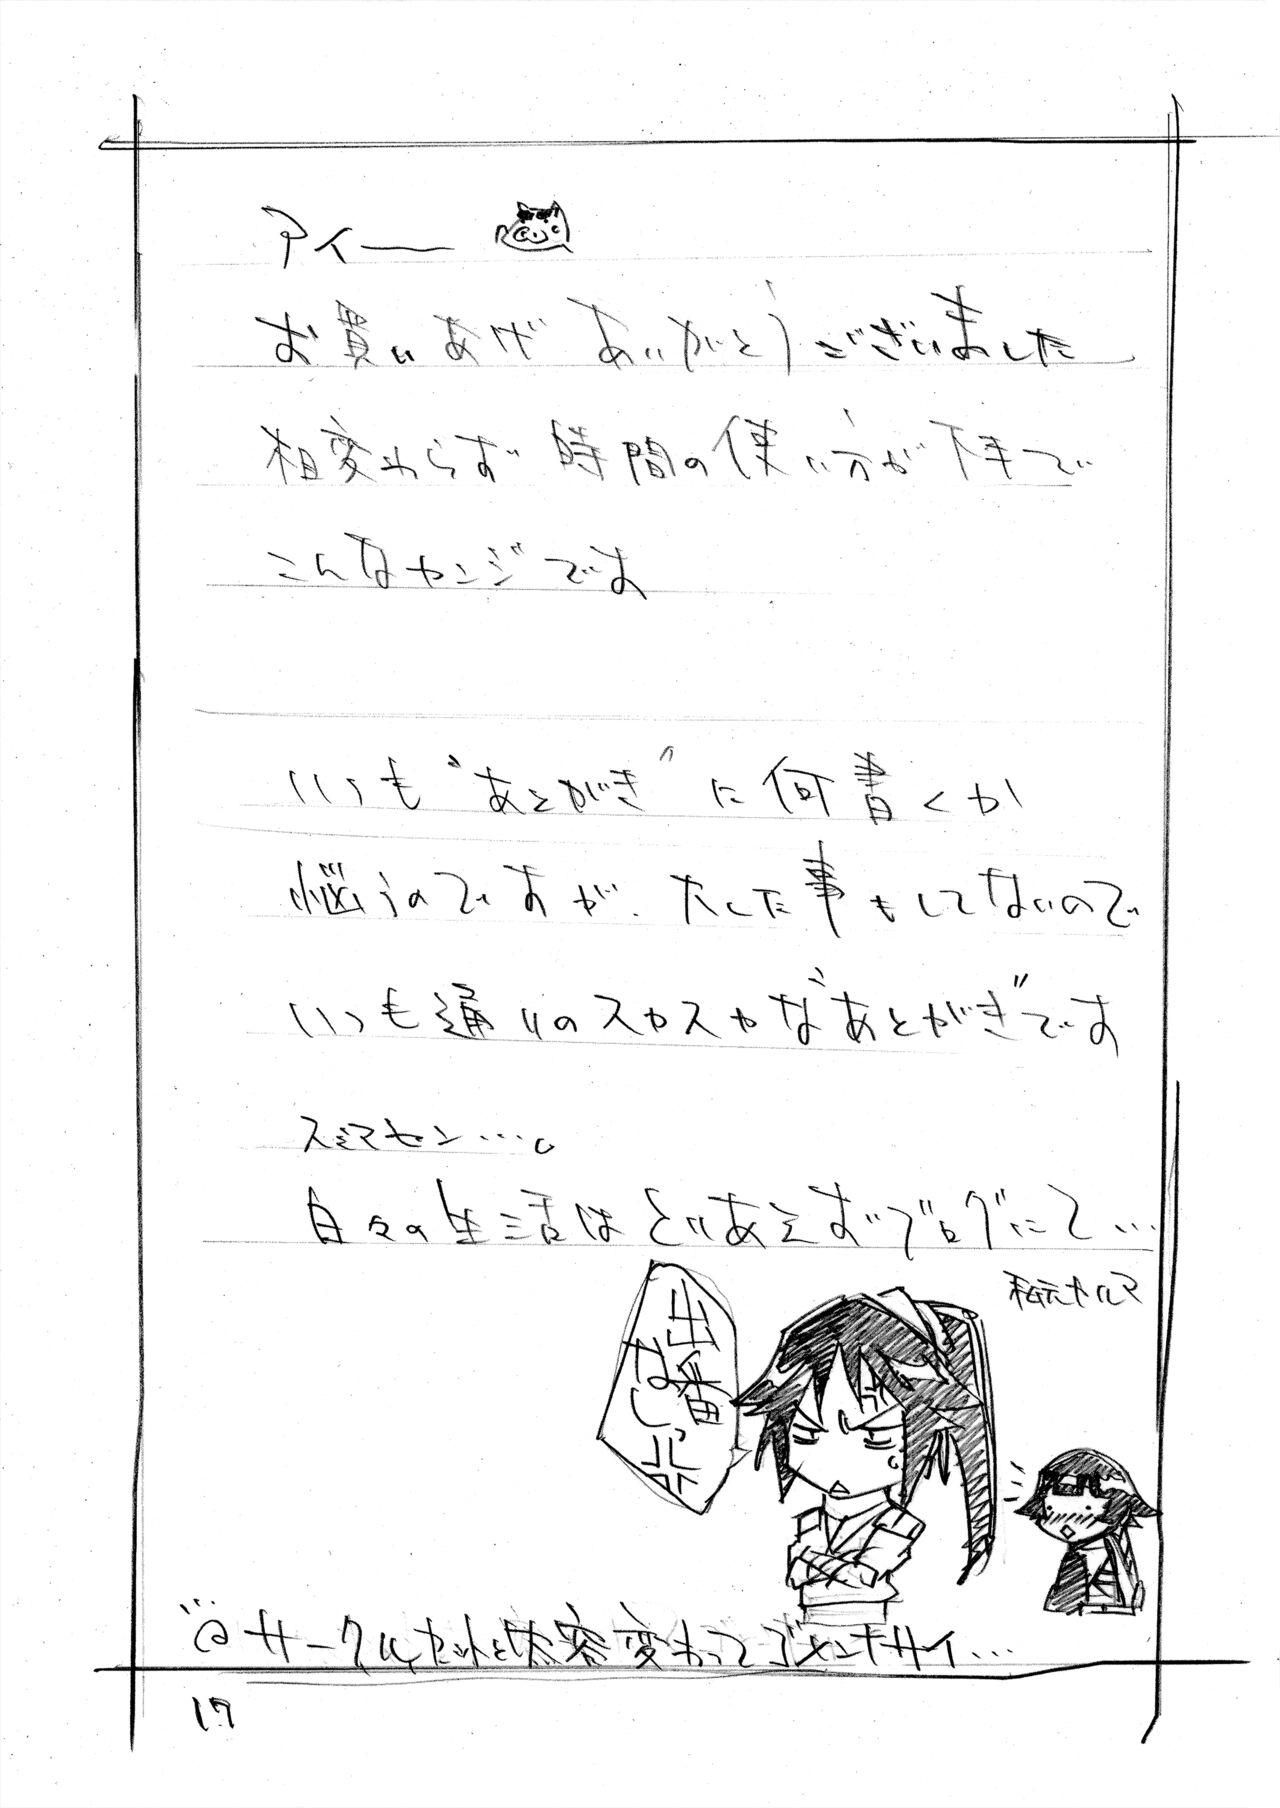 アイ――
お買いあげ ありがとうございました
相変わらず 時間の使い方が下手で
こんなカンジです
いつも“あとがき”に何書くか
悩うのですが、たした事もしてないので
いつも通りのスカスカな“あとがき”です
スミマセン…。
日々の生活はとりあえずブログにて…
出番
なしっ
サークルカットと内容変わってゴメンナサイ…
17